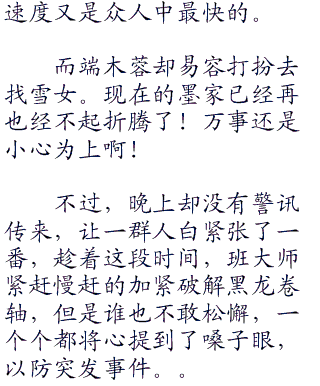 速度又是众人中最快的。
而端木蓉却易容打扮去
找雪女。现在的墨家已经再
也经不起折腾了！万事还是
小心为上啊！
不过，晚上却没有警讯
传来，让一群人白紧张了一
番，趁着这段时间，班大师
紧赶慢赶的加紧破解黑龙卷
轴，但是谁也不敢松懈，一
个个都将心提到了嗓子眼，
以防突发事件。。